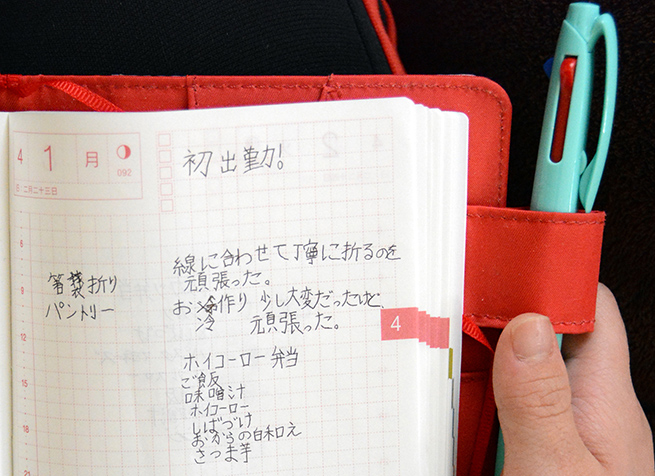 4 1 月
092
二月二十三日
初出勤!
6
線に合わせて丁寧に折るのを
頑張った。
箸袋折り
パントリー
9
お冷作り 少し大変だったけど
冷 頑張った。
4
12
ホイコーロー弁当
ご飯
味噌汁
15
ホイコーロー
しばづけ
18
おからの白和え
さつま芋
21